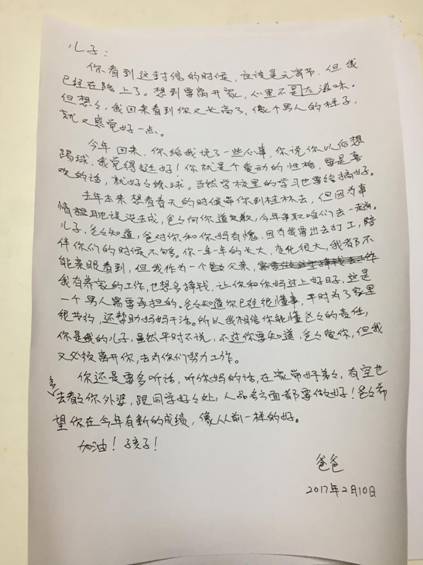 儿子:
你看到这封信的时候,应该是元宵节,但我
已经在路上了。想到要离开家,心里不是滋味。
但想想,我回来看到你又长高了,像个男人的样子,
就又感觉好一点。
今年回来,你给我说了一些小事,你说你以后想
踢球,我觉得挺好!你就是个爱动的性格,要是喜
欢的话,就好好练球。当然学校里的学习也要给搞好。
去年本来想着春天的时候带你到桂林去,但因为事
情耽耽没去成,爸爸向你道歉,今年争取咱们去一起。
儿子,爸爸知道,爸对你和你妈有愧,因为我要出去打工,陪
伴你们的时候不够。你一年一年的长大,变化很大,我看了不
能亲眼看到,但我作为一个父亲,
我有养家的工作,也想多挣钱,让你和你妈过上好日子,这是
一个男人需要承担的。爸爸知道你已经很懂事,平时为了家里
很节约,还帮助妈妈干活。所以我相信你能懂爸爸的责任,
你是我的儿子,虽然平时不说,不过你要知道,爸爸爱你,但我
又必须离开你,去为你们努力工作。
你还是要多听话,听你妈的话,在家带好弟弟,有空也
多去看看你外婆,跟同学好好处,人品各方面都要做好!爸爸希
望你在今年有新的成绩,像从前一样的好。
加油!孩子!
爸爸
2017年2月10日